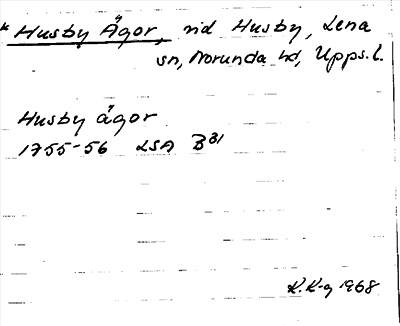 * Husby Ägor, vid Husby, Lena
sn, Norunda hd, Upps. l.
Husby ägor
1755-56 LSA B31
K. K-g 1968